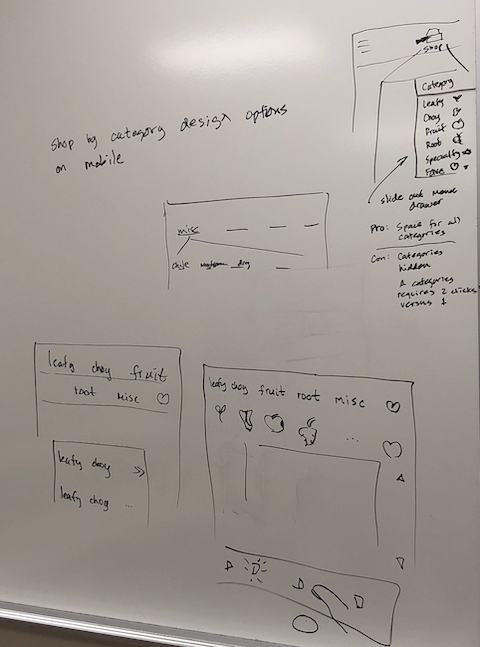 shop by category design options
on mobile
shop
Category
Leafy
Choy
Fruit
Root
Specialty
slide out menu
drawer
Pro: Space for all
categories
Con: Categories
hidden
categories
requires 2 clicks
versus 1
misc
leafy choy fruit
root misc
leafy choy
leafy choy ...
leafy choy fruit root misc
...